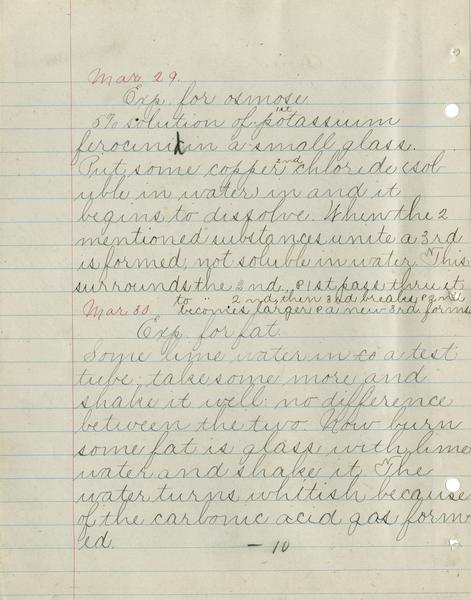 Mar. 29.
Exp. for osmose
1st
5% solution of potassium
ferocinid in a small glass.
2nd
Put some copper chloride (sol
uble in water) in and it
begins to dissolve. When the 2
mentioned substances unite a 3rd
is formed, not soluble in water. This
surrounds the 2nd. 1st pass thru it
to " 2nd, then 3rd breaks, 2nd
Mar. 30. becomes larger a new 3rd forms
Exp. for fat.
Some lime water in to a test
tube; take some more and
shake it well no difference
between the two. Now burn
some fat is glass with lime
water and shake it The
water turns whitish because
of the carbonic acid gas form
ed.
- 10